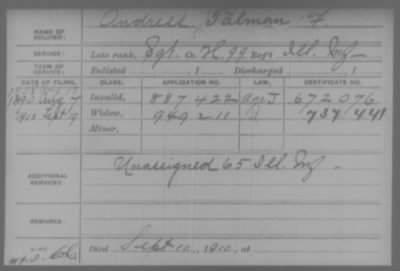 NAME OF SOLDIER: Andress Talman F.
SERVICE: Late rank, Sgt. Co. H, 99 Reg't Ill. Inf
TERM OF SERVICE: Enlisted , 1 Discharged , 1
DATE OF FILING. CLASS. APPLICATION NO. LAW. CERTIFICATE NO.
1890 Aug 7 Invalid, 887422 672076
1910 Sept 9 Widow, 949211 737441
Minor,
ADDITIONAL SERVICES: Unassigned 65 Ill. Inf
REMARKS:
Died Sept 10, 1910, at